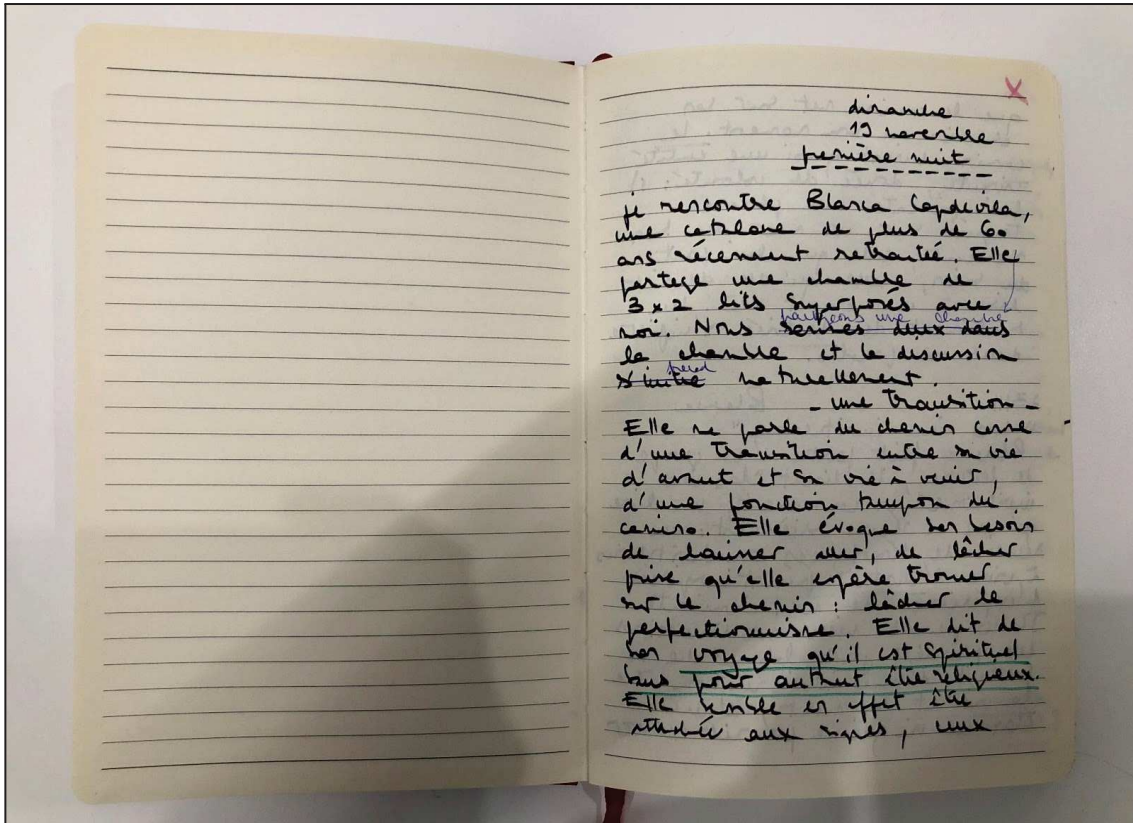 X
dimanche
19 novembre
première nuit
je rencontre Blanca Capdevila,
une catalane de plus de 60
ans récemment retraité. Elle
partage une chambre de
3 x 2 lits superposés avec
partageons une chambre
moi. Nous sommes deux dans
la chambre et la discussion
prend
s'initie naturellement.
- une transition -
Elle me parle du chemin comme
d'une transition entre sa vie
d'avant et sa vie à venir,
d'une fonction tampon du
camino. Elle évoque son besoin
de laisser aller, de lâcher
prise qu'elle espère trouver
sur le chemin : lâcher le
perfectionnisme. Elle dit de
son voyage qu'il est spirituel
sans pour autant être religieux.
Elle semble en effet être
attachée aux signes, ceux